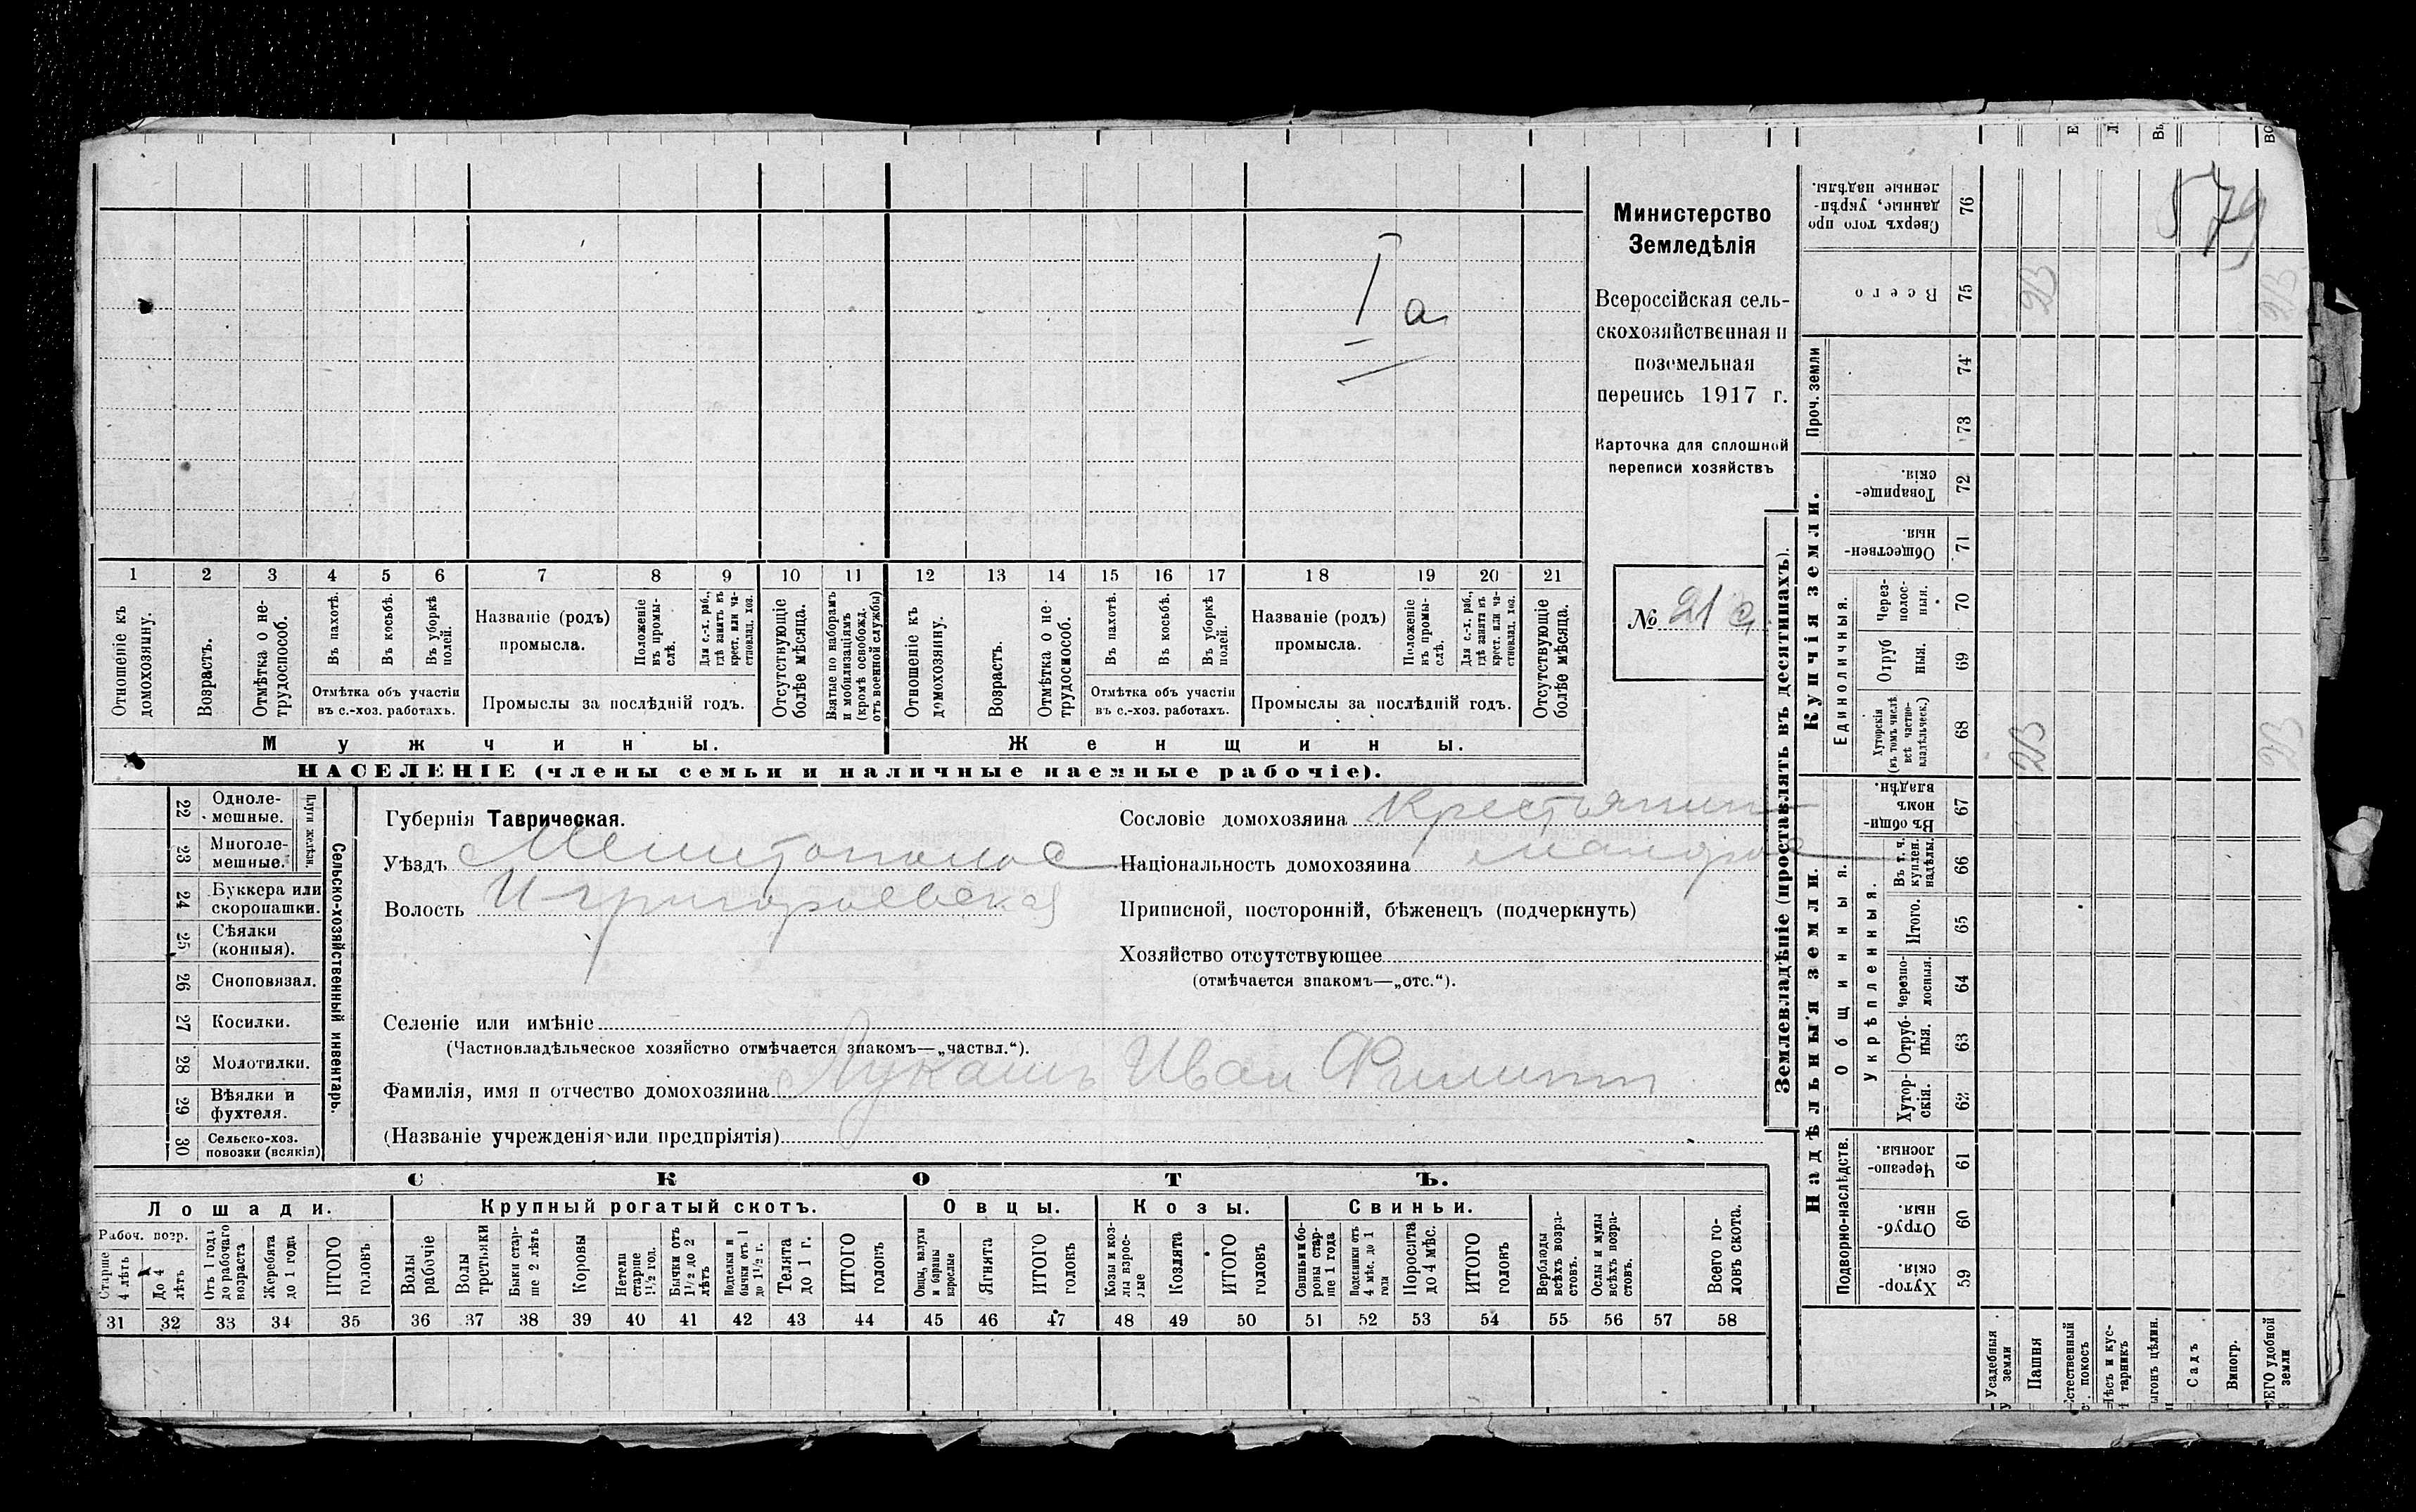 Министерство
Земледѣлія
Всероссійская сель-
скохозяйственная и
поземельная
перепись 1917 г.
Карточка для сплошной
переписи хозяйствъ
№ 21
I a
579
1 2 3 4 5 6 7 8 9 10 11 12 13 14 15 16 17 18 19 20 21
Отношеніе къ домохозяину.
Возрастъ.
Отмѣтка о не-трудоспособ.
Въ пахотѣ.
Въ косьбѣ.
Въ уборкѣ полей.
Отмѣтка объ участіи
въ с.-хоз. работахъ.
Названіе (родъ)
промысла.
Положеніе въ промы-слѣ.
Для с.-х. раб., гдѣ занятъ въ крест. или ча-стновлад. хоз.
Промыслы за послѣдній годъ.
Отсутствующіе болѣе мѣсяца.
Взятые по наборамъ и мобилизаціямъ (кромѣ освобожд. отъ военной службы)
Отношеніе къ домохозяину.
Возрастъ.
Отмѣтка о не-трудоспособ.
Въ пахотѣ.
Въ косьбѣ.
Въ уборкѣ полей.
Отмѣтка объ участіи
въ с.-хоз. работахъ.
Названіе (родъ)
промысла.
Положеніе въ промы-слѣ.
Для с.-х. раб., гдѣ занята въ крест. или ча-стновлад. хоз.
Промыслы за послѣдній годъ.
Отсутствующіе болѣе мѣсяца.
Мужчины. Женщины.
НАСЕЛЕНІЕ (члены семьи и наличные наемные рабочіе).
Сельско-хозяйственный инвентарь.
Плуги желѣзн.
22 Одноле-мешные.
23 Многоле-мешные.
24 Буккера или скоропашки.
25 Сѣялки (конныя).
26 Сноповязал.
27 Косилки.
28 Молотилки.
29 Вѣялки и фухтеля.
30 Сельско-хоз. повозки (всякія)
Губернія Таврическая.
Уѣздъ Мелитопольс
Волость И-григорьевская
Сословіе домохозяина Крестьянин
Національность домохозяина малорос
Приписной, посторонній, бѣженецъ (подчеркнуть)
Хозяйство отсутствующее
(отмѣчается знакомъ—„отс.“).
Селеніе или имѣніе
(Частновладѣльческое хозяйство отмѣчается знакомъ—„частвл.“).
Фамилія, имя и отчество домохозяина Лукашъ Иван Филипп
(Названіе учрежденія или предпріятія)
СКОТЪ.
Лошади. Крупный рогатый скотъ. Овцы. Козы. Свиньи.
Рабоч. возр.
Старше 4 лѣтъ
До 4 лѣтъ
Отъ 1 года до рабочаго возраста
Жеребята до 1 года
ИТОГО головъ
Волы рабочіе
Волы третьяки
Быки стар-ше 2 лѣтъ
Коровы
Нетели старше 1½ год.
Бычки отъ 1½ до 2 лѣтъ
Подтелки и бычки отъ 1 до 1½ г.
Телята до 1 г.
ИТОГО головъ
Овцы, валухи и бараны взрослые
Ягнята
ИТОГО головъ
Козы и коз-лы взрос-лые
Козлята
ИТОГО головъ
Свиньи и бо-ровы стар-ше 1 года
Подсвинки отъ 4 мѣс. до 1 года
Поросята до 4 мѣс.
ИТОГО головъ
Верблюды всѣхъ возра-стовъ.
Ослы и мулы всѣхъ возра-стовъ.
Всего го-ловъ скота.
31 32 33 34 35 36 37 38 39 40 41 42 43 44 45 46 47 48 49 50 51 52 53 54 55 56 57 58
Землевладѣніе (проставлять въ десятинахъ).
Надѣльныя земли. Купчія земли.
Проч. земли
Подворно-наслѣдств.
Общинныя.
Укрѣпленныя.
Единоличныя.
Хутор-скія. 59
Отруб-ныя. 60
Черезпо-лосныя. 61
Хутор-скія. 62
Отруб-ныя. 63
Черезпо-лосныя. 64
Итого. 65
Въ т. ч. куплен. надѣлы. 66
Въ общин-номъ владѣн. 67
Хуторскія (въ томъ числѣ всѣ частно-владѣльческ.) 68
Отруб-ныя. 69
Через-полос-ныя. 70
Обществен-ныя. 71
Товарище-скія. 72
73
74
Всего 75
Сверхъ того про-данные, укрѣп-ленные надѣлы. 76
23 23
23 23
Усадебныя земли
Пашня
Естественный покосъ
Лѣсъ и кус-тарникъ
Выгонъ цѣлин.
Садъ
Виногр.
ВСЕГО удобной земли